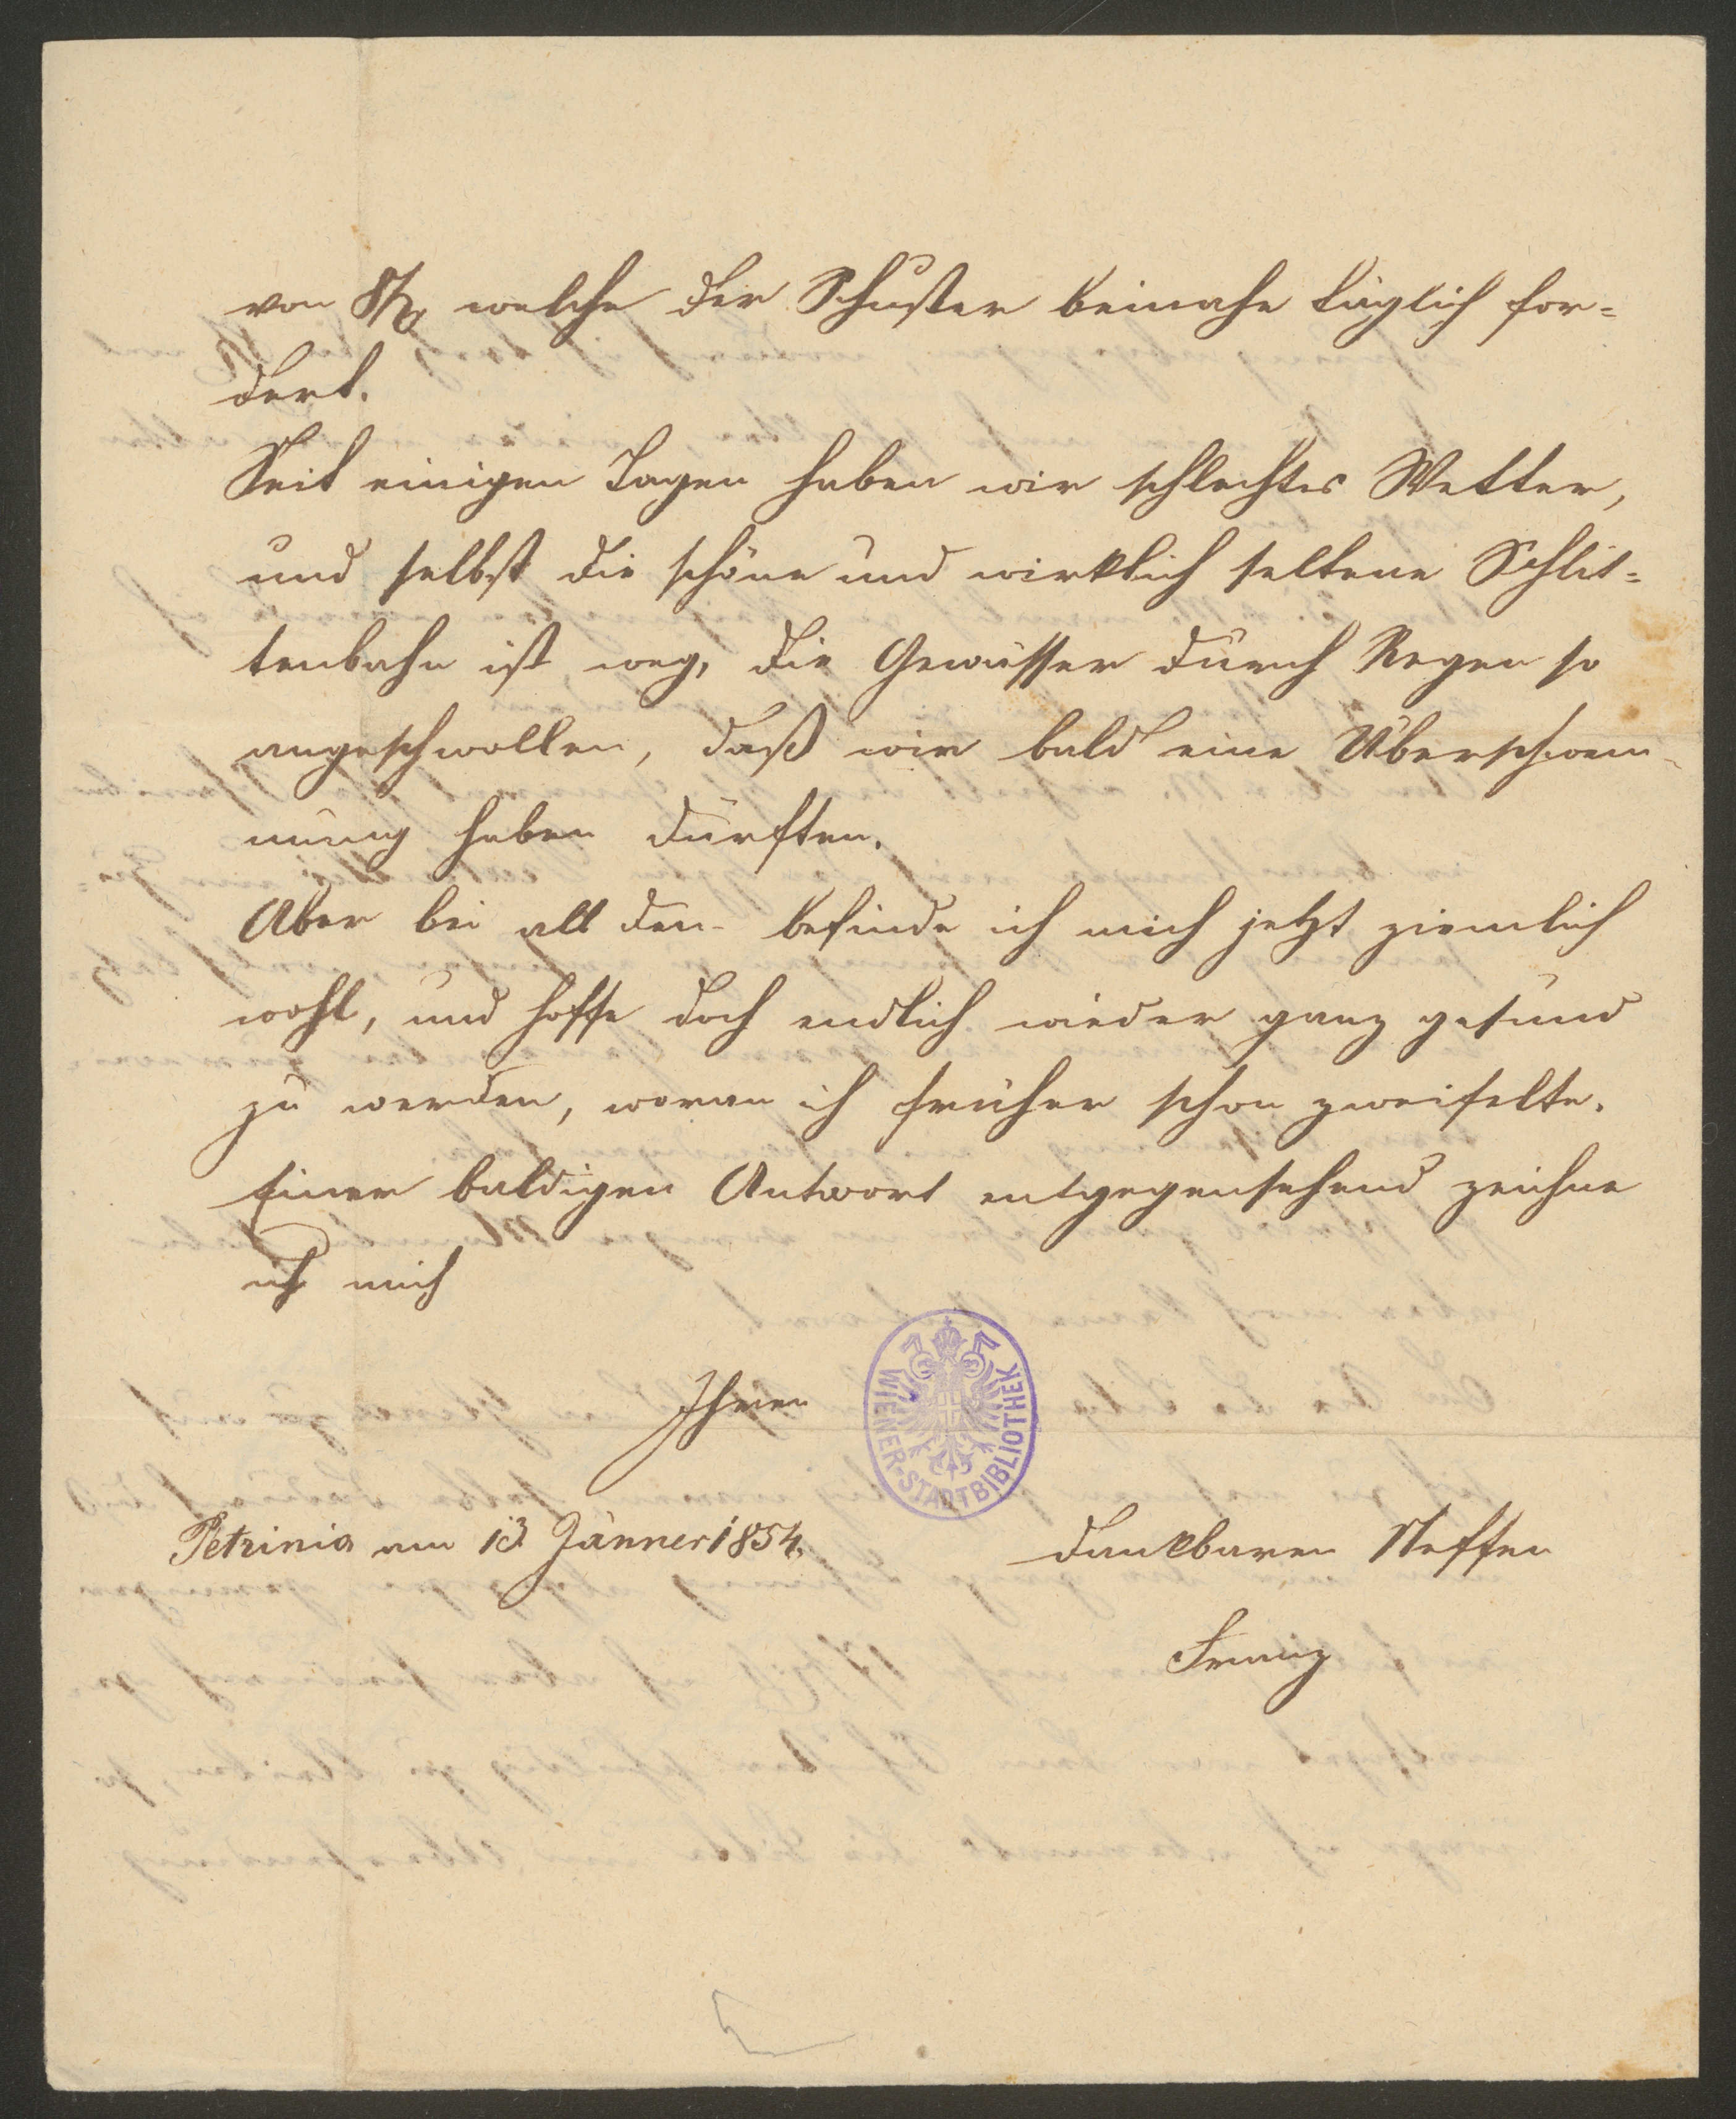 von 8 f welche der Schuster beinahe täglich for=
dert.
Seit einigen Tagen haben wir schlechtes Wetter,
und selbst die schöne und wirklich seltene Schlit=
tenbahn ist weg, die Gewässer durch Regen so
angeschwollen, daß wir bald eine Überschwem-
mung haben dürften.
Aber bei all dem befinde ich mich jetzt ziemlich
wohl, und hoffe doch endlich wieder ganz gesund
zu werden, woran ich früher schon zweifelte.
Einer baldigen Antwort entgegensehend zeichne
ich mich
Ihren
WIENER-STADTBIBLIOTHEK
Petrinia am 13 Jänner 1854.
dankbaren Neffen
Franz